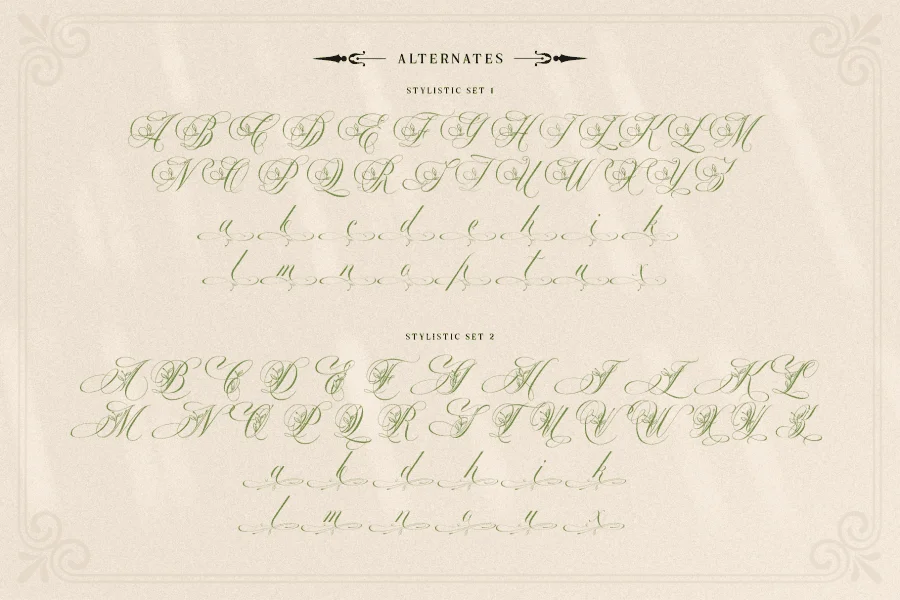 ALTERNATES
STYLISTIC SET 1
A B C D E F G H I J K L M
N O P Q R S T U V W X Y Z
a b c d e h i k
l m n o p t u x
STYLISTIC SET 2
A B C D E F G H I J K L
M N O P Q R S T U V W X Y Z
a b d h i k
l m n o u x